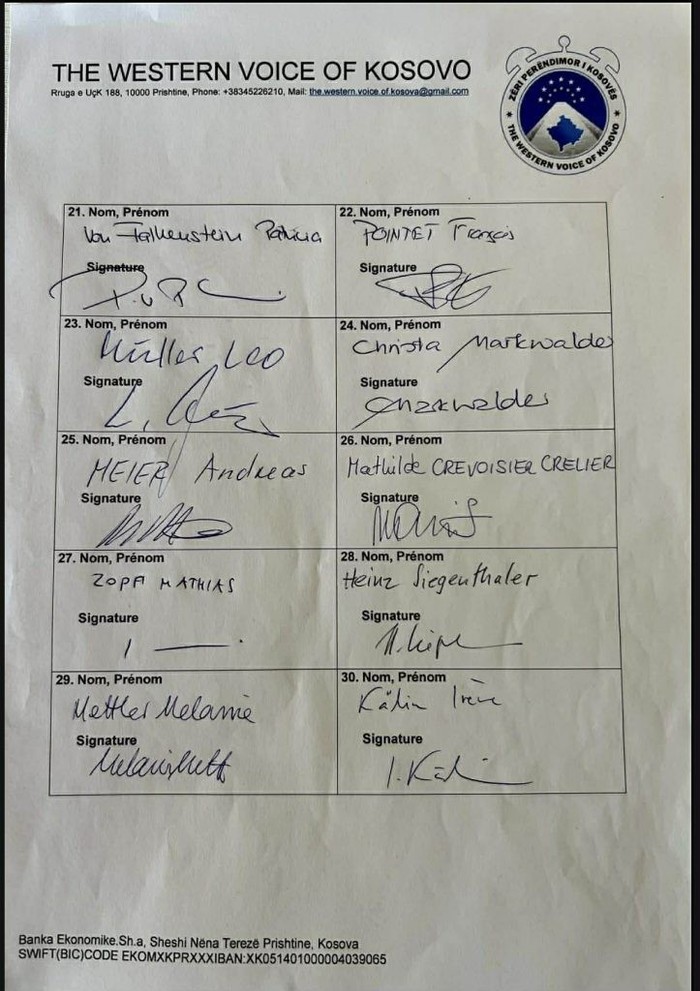 THE WESTERN VOICE OF KOSOVO
Rruga e UçK 188, 10000 Prishtine, Phone: +38345226210, Mail: the.western.voice.of.kosova@gmail.com
ZËRI PERËNDIMOR I KOSOVËS
THE WESTERN VOICE OF KOSOVO
21. Nom, Prénom
Von Falkenstein Patricia
Signature
22. Nom, Prénom
POINTET François
Signature
23. Nom, Prénom
Müller Leo
Signature
24. Nom, Prénom
Christa Markwalder
Signature
CMarkwalder
25. Nom, Prénom
MEIER Andreas
Signature
26. Nom, Prénom
Mathilde CREVOISIER CRELIER
Signature
27. Nom, Prénom
ZOPFI MATHIAS
Signature
28. Nom, Prénom
Heinz Siegenthaler
Signature
29. Nom, Prénom
Mettler Melanie
Signature
30. Nom, Prénom
Kälin Irène
Signature
I. Kä
Banka Ekonomike.Sh.a, Sheshi Nëna Terezë Prishtine, Kosova
SWIFT(BIC)CODE EKOMXKPRXXXIBAN:XK051401000004039065